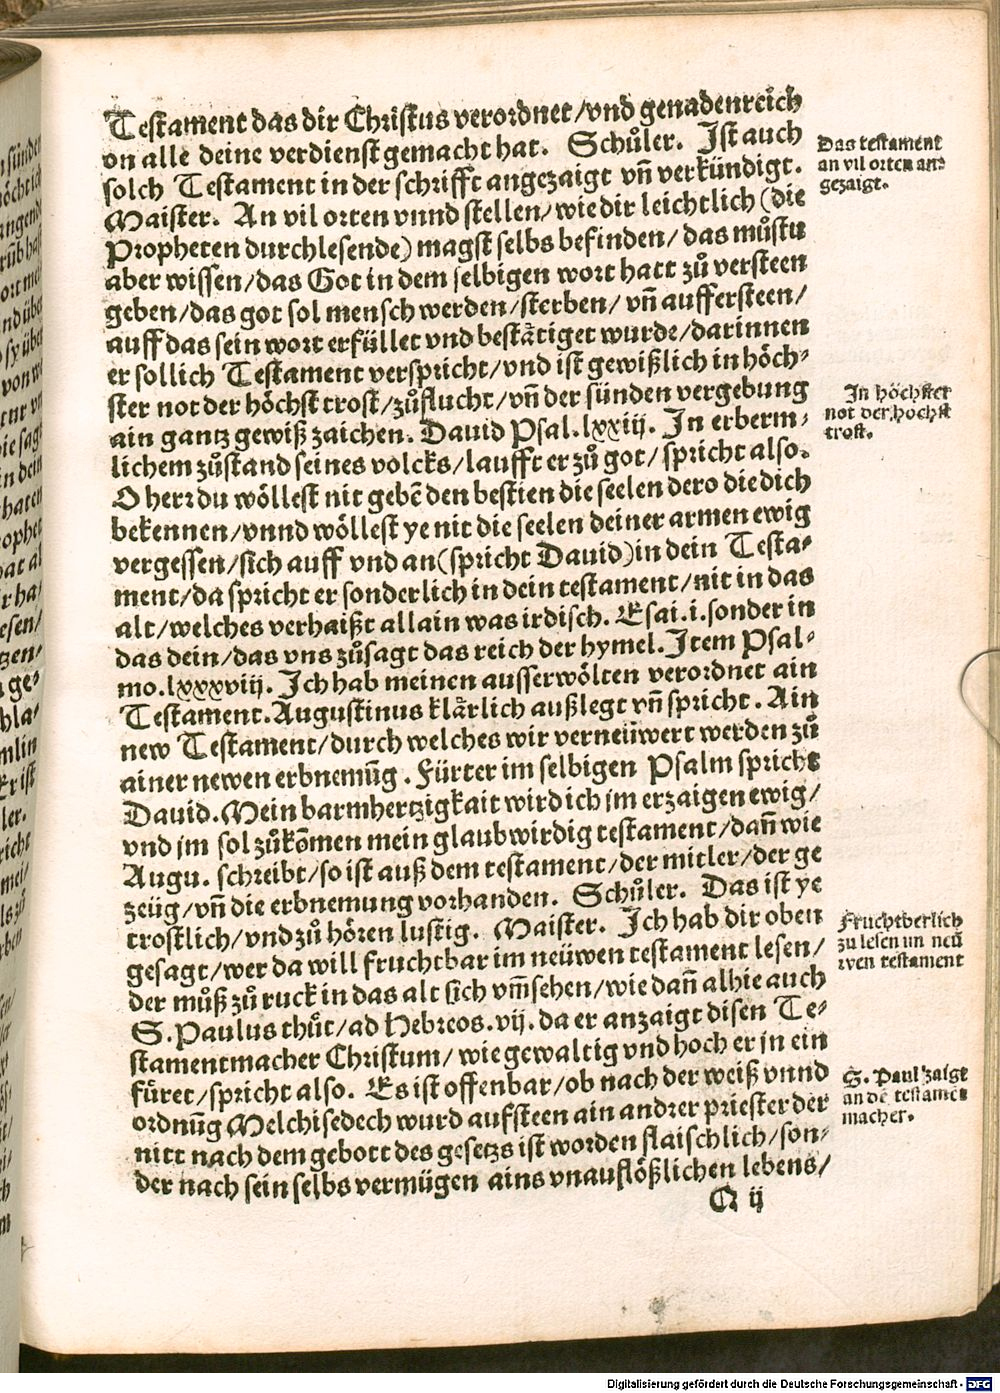 Testament das dir Christus verordnet/vnd genadenreich
on alle deine verdienst gemacht hat. Schůler. Ist auch
solch Testament in der schrifft angezaigt vñ verkündigt.
Maister. An vil orten vnnd stellen/wie dir leichtlich (die
Propheten durchlesende) magst selbs befinden/das můstu
aber wissen/das Got in dem selbigen wort hatt zů versteen
geben/das got sol mensch werden/sterben/vñ auffersteen/
auff das sein wort erfüllet vnd bestätiget wurde/darinnen
er sollich Testament verspricht/vnd ist gewißlich in höch-
ster not der höchst trost/zůflucht/vñ der sünden vergebung
ain gantz gewiß zaichen. Dauid Psal. lxxiij. In erberm-
lichem zůstand seines volcks/laufft er zů got/spricht also.
O herr du wöllest nit gebē den bestien die seelen dero die dich
bekennen/vnnd wöllest ye nit die seelen deiner armen ewig
vergessen/sich auff vnd an (spricht Dauid) in dein Testa-
ment/da spricht er sonderlich in dein testament/nit in das
alt/welches verhaißt allain was irdisch. Esai. i. sonder in
das dein/das vns zůsagt das reich der hymel. Item Psal-
mo. lxxxviij. Ich hab meinen ausserwölten verordnet ain
Testament. Augustinus klärlich außlegt vñ spricht. Ain
new Testament/durch welches wir verneüwert werden zů
ainer newen erbnemūg. Fürter im selbigen Psalm spricht
Dauid. Mein barmhertzigkait wird ich jm erzaigen ewig/
vnd jm sol zůkōmen mein glaubwirdig testament/dañ wie
Augu. schreibt/so ist auß dem testament/der mitler/der ge
zeüg/vñ die erbnemung vorhanden. Schůler. Das ist ye
trostlich/vnd zů hören lustig. Maister. Ich hab dir oben
gesagt/wer da will fruchtbar im neüwen testament lesen/
der můß zů ruck in das alt sich vm̄sehen/wie dañ alhie auch
S. Paulus thůt/ad Hebreos. vij. da er anzaigt disen Te-
stamentmacher Christum/wie gewaltig vnd hoch er jn ein
füret/spricht also. Es ist offenbar/ob nach der weiß vnnd
ordnūg Melchisedech wurd aufsteen ain andrer priester der
nitt nach dem gebott des gesetzs ist worden flaischlich/son-
der nach sein selbs vermügen ains vnauflößlichen lebens/
Q ij
Das testament
an vil orten an-
gezaigt.
In höchster
not der höchst
trost.
Fruchtberlich
zu lesen im neü
wen testament
S. Paul zaigt
an dē testamen
macher.
Digitalisierung gefördert durch die Deutsche Forschungsgemeinschaft - DFG